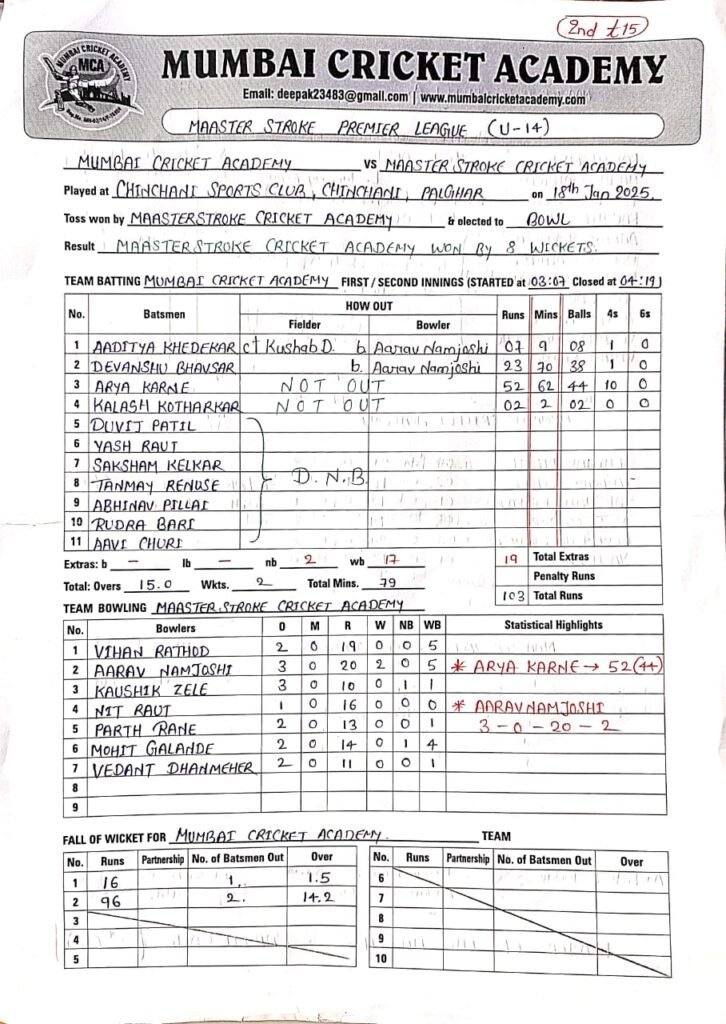 2nd t15
MUMBAI CRICKET ACADEMY
MCA
MUMBAI CRICKET ACADEMY
Email: deepak23483@gmail.com | www.mumbaicricketacademy.com
MAASTER STROKE PREMIER LEAGUE (U-14)
MUMBAI CRICKET ACADEMY VS MAASTER STROKE CRICKET ACADEMY
Played at CHINCHANI SPORTS CLUB, CHINCHANI, PALGHAR on 18th Jan 2025.
Toss won by MAASTERSTROKE CRICKET ACADEMY & elected to BOWL
Result MAASTERSTROKE CRICKET ACADEMY WON BY 8 WICKETS.
TEAM BATTING MUMBAI CRICKET ACADEMY FIRST / SECOND INNINGS (STARTED at 03:07 Closed at 04:19)
No. Batsmen HOW OUT Runs Mins Balls 4s 6s
Fielder Bowler
1 AADITYA KHEDEKAR ct Kushab D. b. Aarav Namjoshi 07 9 08 1 0
2 DEVANSHU BHAVSAR b. Aarav Namjoshi 23 70 38 1 0
3 ARYA KARNE NOT OUT 52 62 44 10 0
4 KALASH KOTHARKAR NOT OUT 02 2 02 0 0
5 DUVIT PATIL
6 YASH RAUT
7 SAKSHAM KELKAR
8 TANMAY RENUSE D.N.B.
9 ABHINAV PILLAI
10 RUDRA BARI
11 AAVI CHURI
Extras: b – lb – nb 2 wb 17 19 Total Extras
Penalty Runs
Total: Overs 15.0 Wkts. 2 Total Mins. 79 103 Total Runs
TEAM BOWLING MAASTER STROKE CRICKET ACADEMY
No. Bowlers O M R W NB WB Statistical Highlights
1 VIHAN RATHOD 2 0 19 0 0 5
2 AARAV NAMJOSHI 3 0 20 2 0 5 * ARYA KARNE → 52(44)
3 KAUSHIK ZELE 3 0 10 0 1 1
4 NIT RAUT 1 0 16 0 0 0 * AARAV NAMJOSHI
5 PARTH RANE 2 0 13 0 0 1 3-0-20-2
6 MOHIT GALANDE 2 0 14 0 1 4
7 VEDANT DHANMEHER 2 0 11 0 0 1
8
9
FALL OF WICKET FOR MUMBAI CRICKET ACADEMY. TEAM
No. Runs Partnership No. of Batsmen Out Over No. Runs Partnership No. of Batsmen Out Over
1 16 1. 1.5 6
2 96 2. 14.2 7
3 8
4 9
5 10